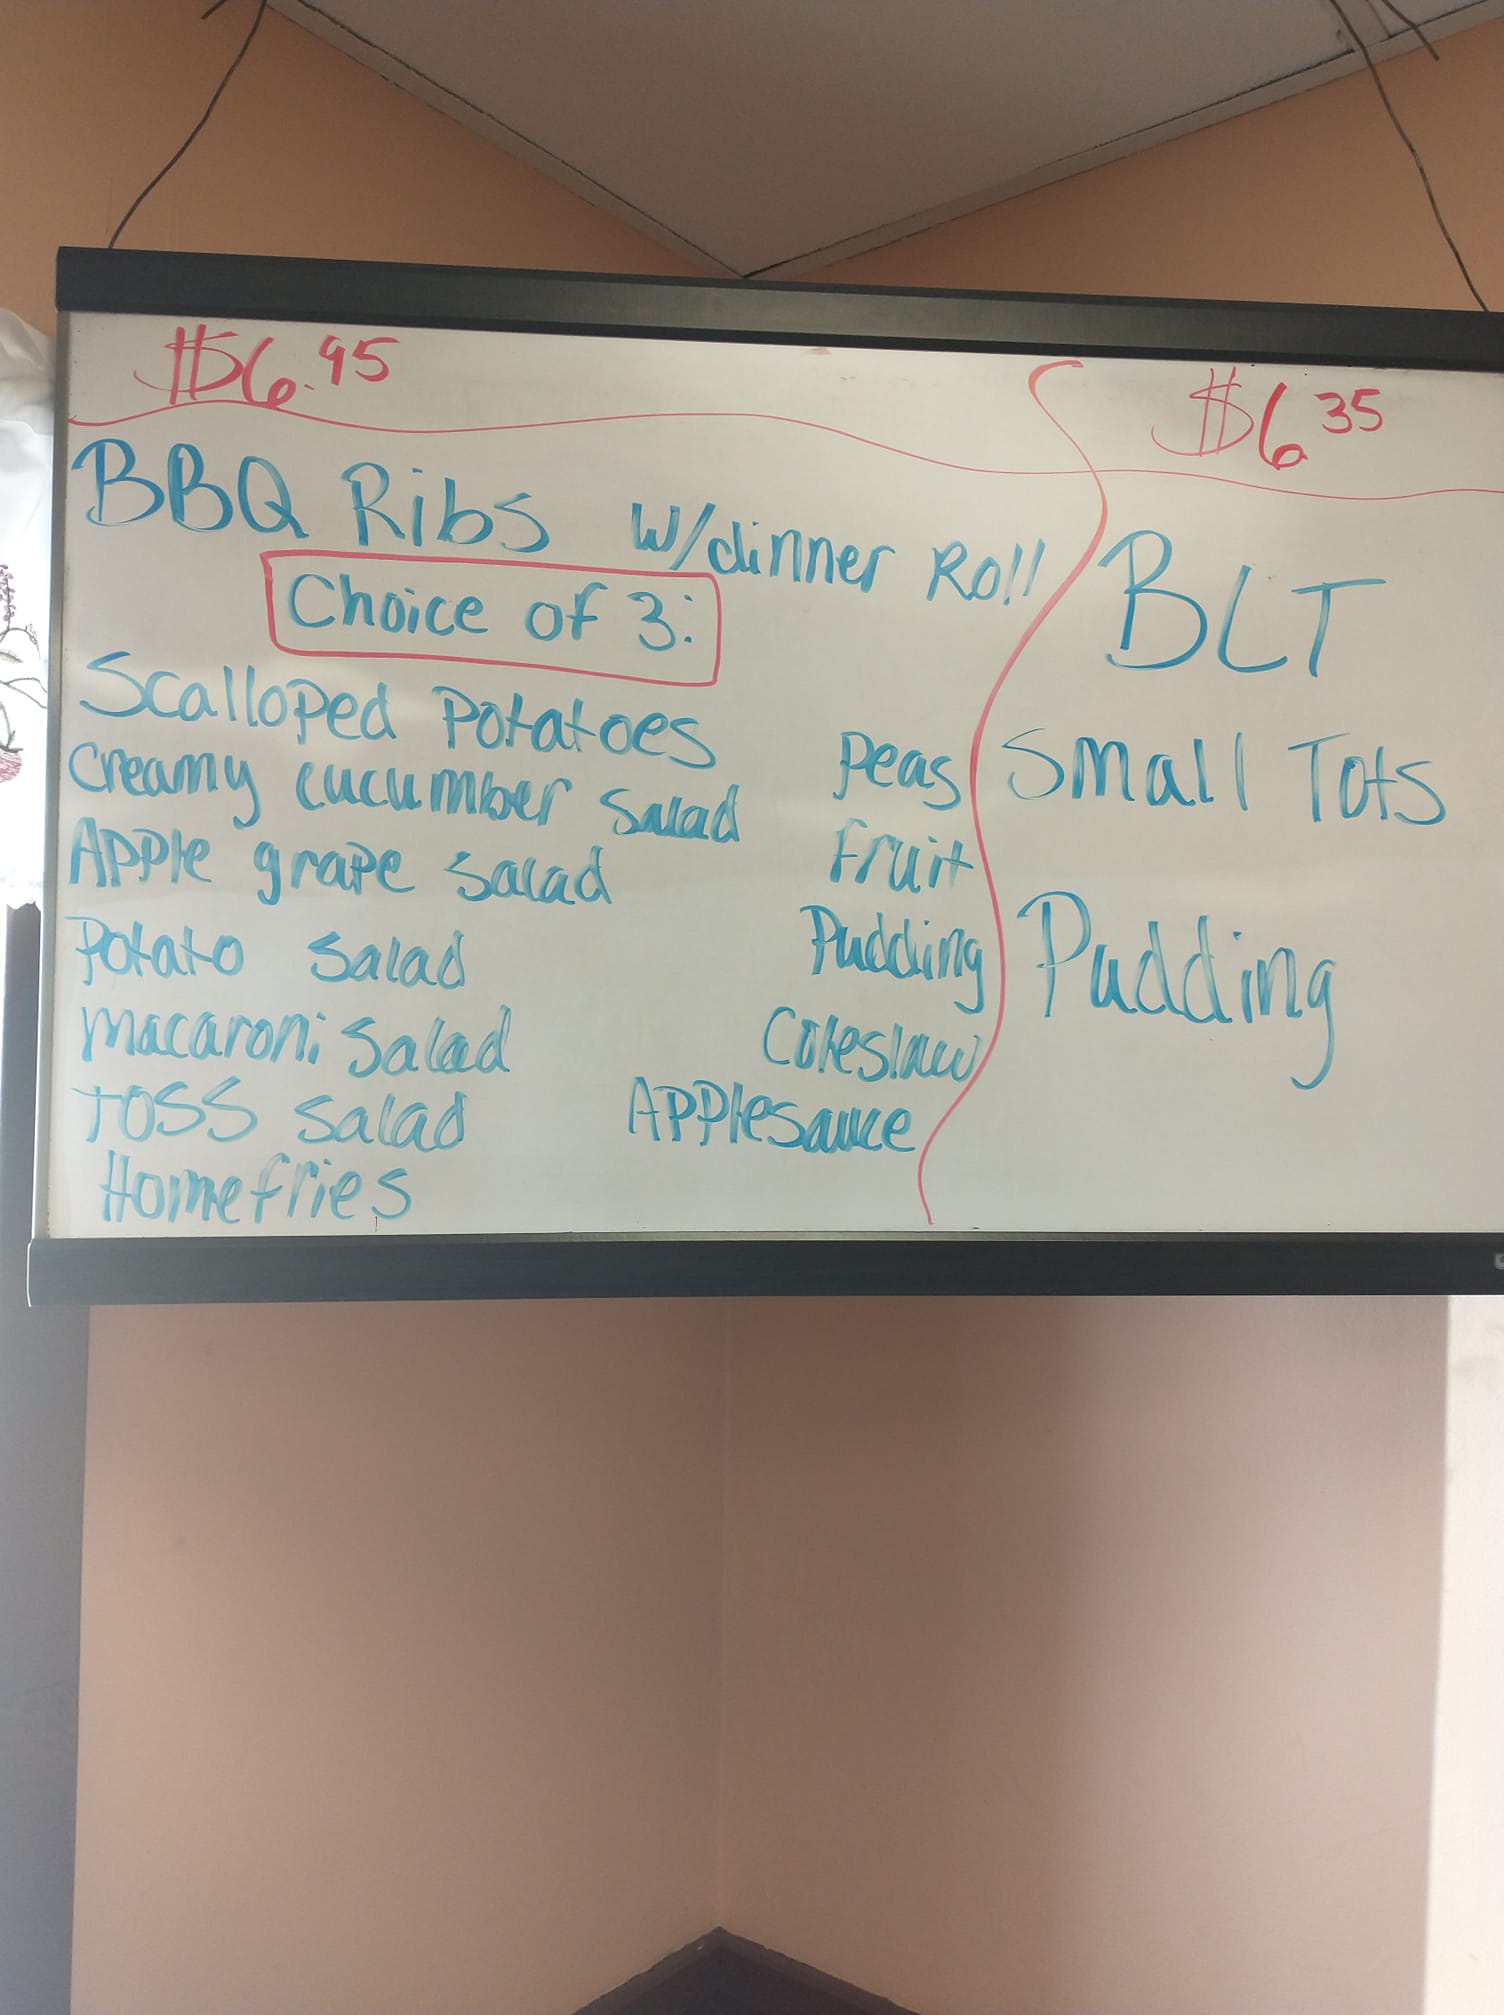 $6.95
BBQ Ribs w/dinner Roll
Choice of 3:
Scalloped Potatoes
Creamy cucumber salad
Apple grape salad
Potato salad
Macaroni Salad
Toss Salad
Homefries
Peas
Fruit
Pudding
Coleslaw
Applesauce
$6 35
BLT
Small Tots
Pudding